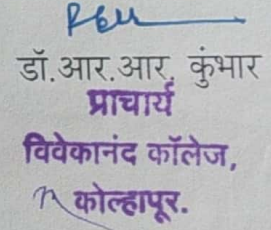 डॉ.आर.आर. कुंभार
प्राचार्य
विवेकानंद कॉलेज,
कोल्हापूर.